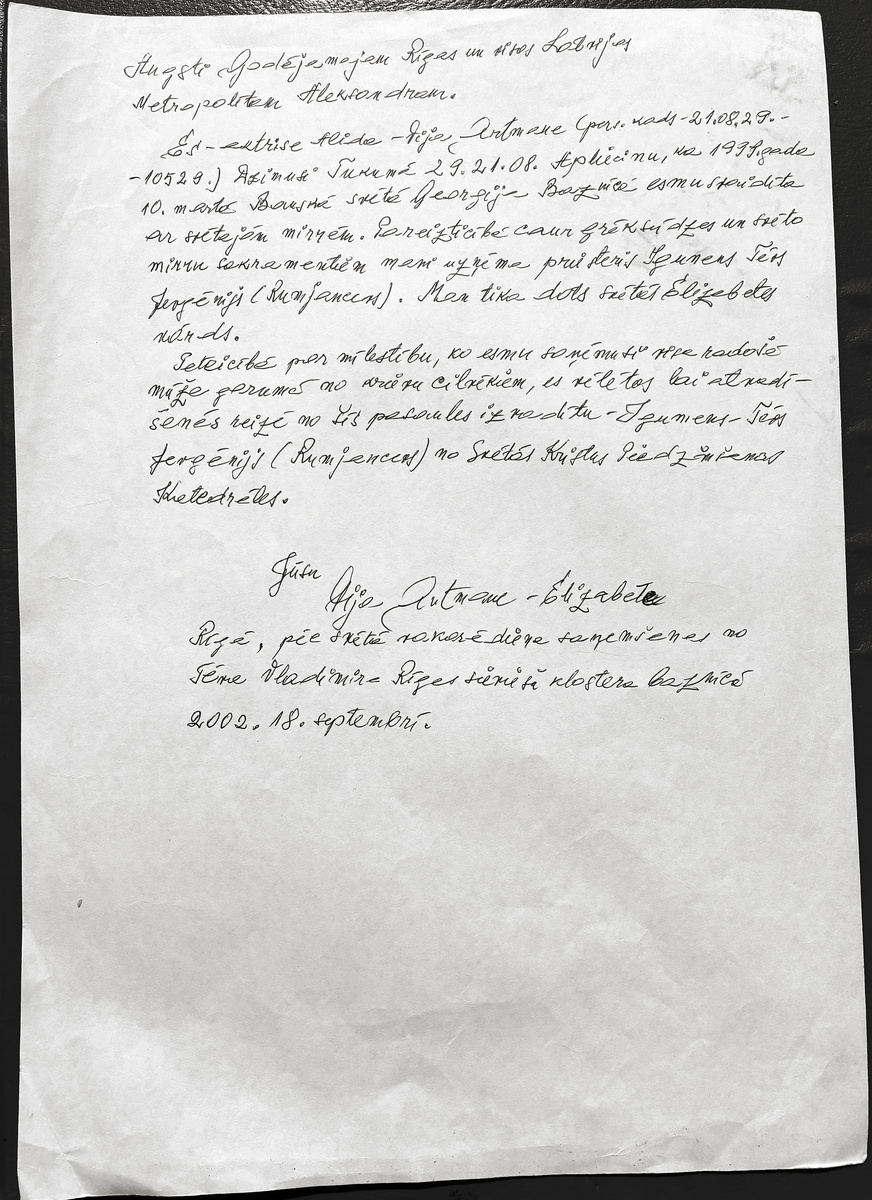 Augsti Godājamajam Rīgas un visas Latvijas
Metropolitam Aleksandram.
Es - aktrise Alida - Vija Artmane (pers. kods - 21.08.29. -
- 10529.) Dzimusi Tukumā 29.21.08. Apliecinu, ka 1999. gada
10. martā Bauskā svētā Georgija Baznīcā esmu svaidīta
ar svētajām mirrēm. Pareizticībā caur grēksūdzes un svēto
mirru sakramentiem mani uzņēma priesteris Igumens Tēvs
Jevgēnijs (Rumjancevs). Man tika dots svētās Elizabetes
vārds.
Pateicībā par mīlestību, ko esmu saņēmusi visa radošā
mūža garumā no krievu cilvēkiem, es vēlētos lai atvadī-
šanās reizē no šīs pasaules izvadītu - Igumens - Tēvs
Jevgēnijs (Rumjancevs) no Svētās Kristus Piedzimšanas
Katedrāles.
Jūsu
Vija Artmane - Elizabete
Rīgā, pēc svētā vakarēdiena saņemšanas no
Tēva Vladimira Rīgas sieviešu klostera baznīcā
2002. 18. septembrī.